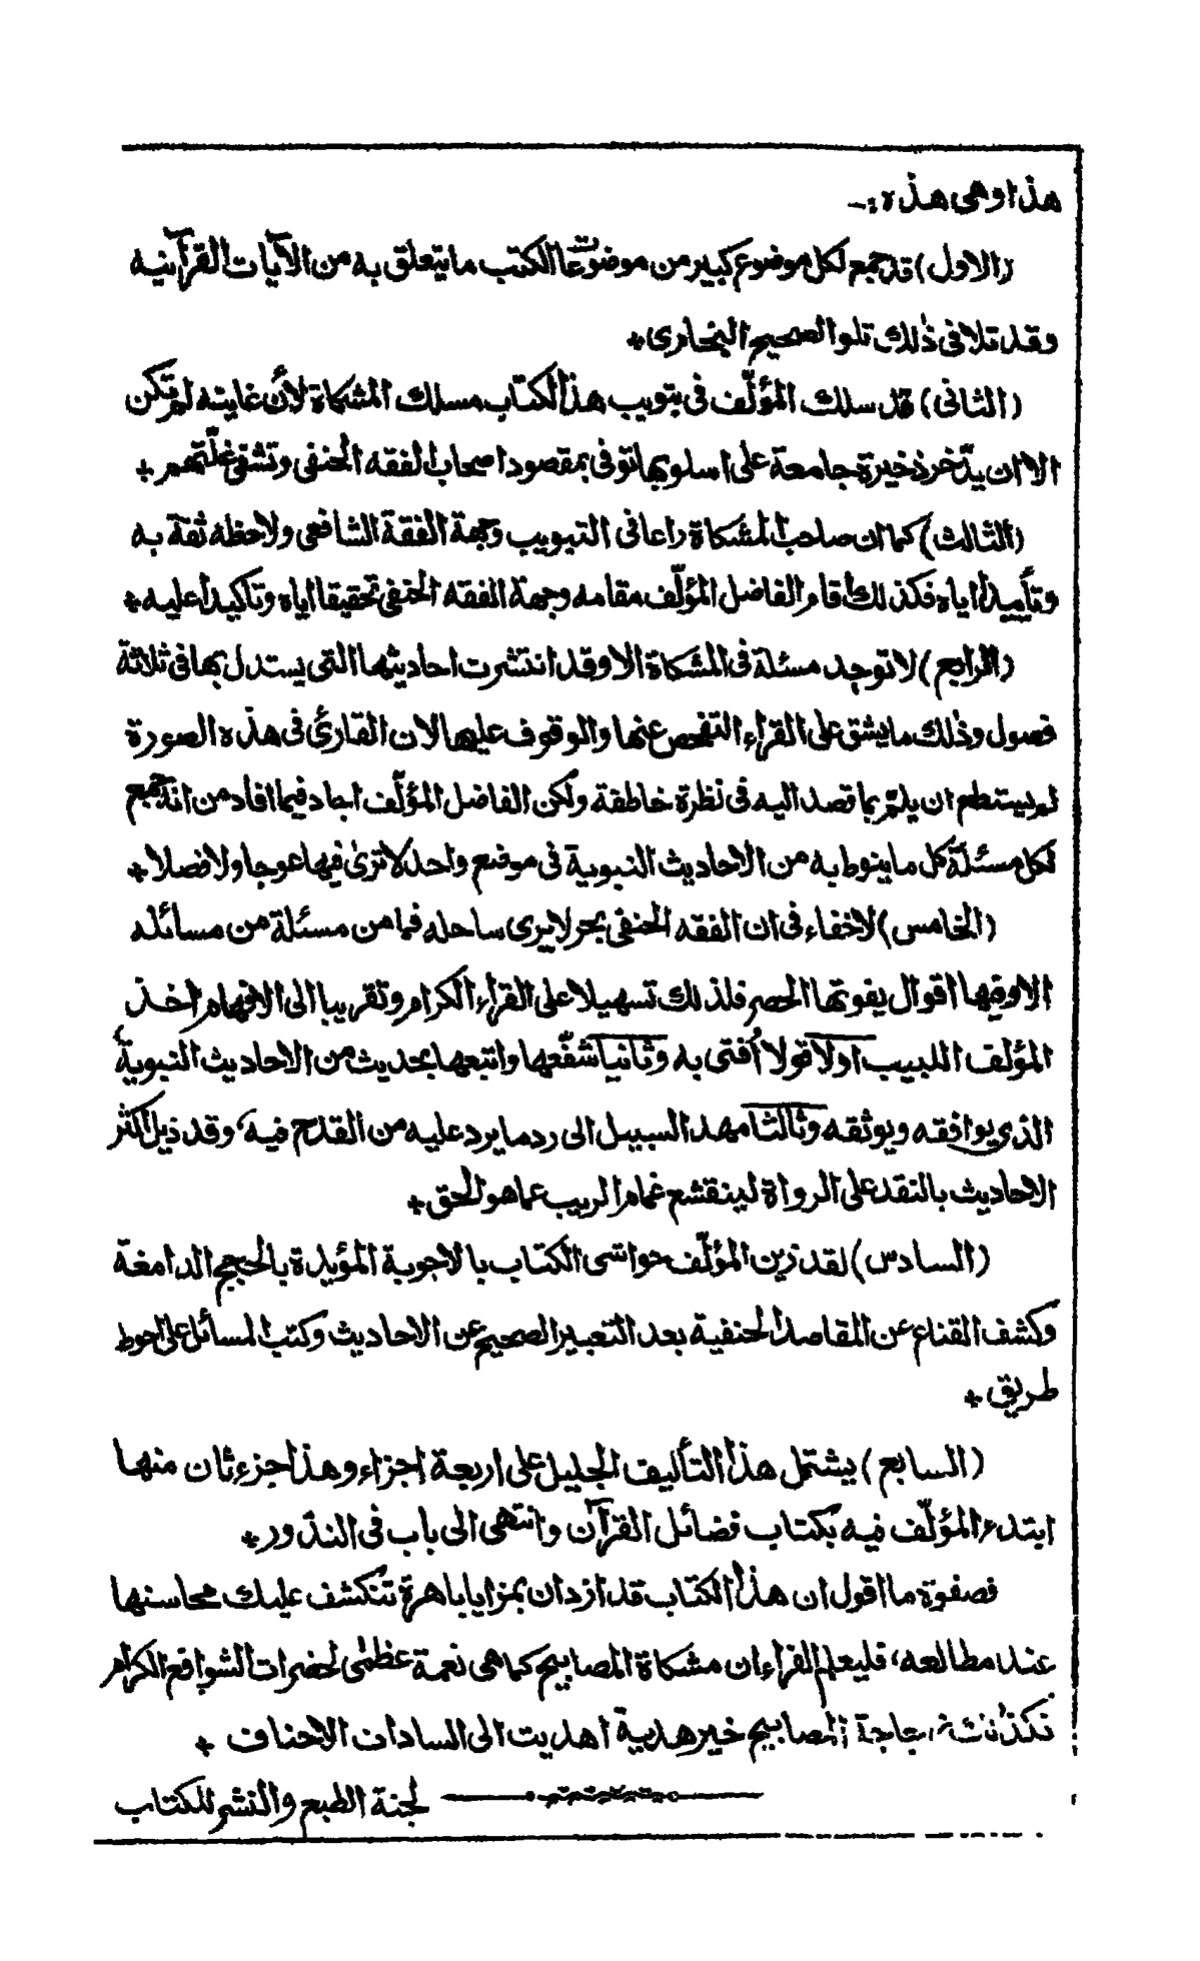 هذا وهى هذه :-
(الاول) قد جمع لكل موضوع كبير من موضوعات الكتب ما يتعلق به من الآيات القرآنيه
وقد تلا فى ذلك تلو الصحيح البخارى +
(الثانى) قد سلك المؤلّف فى تبويب هذا الكتاب مسلك المشكاة لأن غايته لم تكن
الا ان يدّخر ذخيرة جامعة على اسلوبها توفى بمقصود اصحاب الفقه الحنفى وتشفى غلّتهم +
(الثالث) كما ان صاحب المشكاة راعا فى التبويب وجهة الفقة الشافعى ولاحظه ثقة به
وتأييداً اياه فكذلك أقام الفاضل المؤلّف مقامه وجهة الفقه الحنفى تحقيقا اياه وتاكيداً عليه +
(الرابع) لا توجد مسئلة فى المشكاة الا وقد انتشرت احاديثها التى يستدل بها فى ثلاثة
فصول وذلك ما يشق على القراء التفحص عنها والوقوف عليها لان القارئ فى هذه الصورة
لم يستطع ان يلمّ بما قصد اليه فى نظرة خاطفة ولكن الفاضل المؤلّف اجاد فيما افاد من انه جمع
لكل مسئلة كل ما ينوط به من الاحاديث النبوية فى موضع واحد لا ترى فيها عوجا ولا فصلا +
(الخامس) لاخفاء فى ان الفقه الحنفى بحر لا يرى ساحله فما من مسئلة من مسائله
الا وفيها اقوال يفوتها الحصر فلذلك تسهيلا على القراء الكرام وتقريبا الى الافهام اخذ
المؤلف اللبيب اولا قولا أُفتى به وثانيا شفّعها واتبعها بحديث من الاحاديث النبوية
الذى يوافقه ويوثقه وثالثا مهد السبيل الى رد ما يرد عليه من القدح فيه، وقد ذيل اكثر
الاحاديث بالنقد على الرواة لينقشع غمام الريب عما هو الحق +
(السادس) لقد زين المؤلّف حواشى الكتاب بالاجوبة المؤيدة بالحجج الدامغة
وكشف القناع عن المقاصد الحنفية بعد التعبير الصحيح عن الاحاديث وكتب المسائل على احوط
طريق +
(السابع) يشتمل هذا التأليف الجليل على اربعة اجزاء وهذا جزء ثان منها
ابتدء المؤلّف فيه بكتاب فضائل القرآن وانتهى الى باب فى النذور +
فصفوة ما اقول ان هذا الكتاب قد ازدان بمزايا باهرة تنكشف عليك محاسنها
عند مطالعه، فليعلم القراء ان مشكاة المصابيح كما هى نعمة عظمى لحضرات الشوافع الكرام
زجاجة المصابيح خير هدية اهديت الى السادات الاحناف +
لجنة الطبع والنشر للكتاب